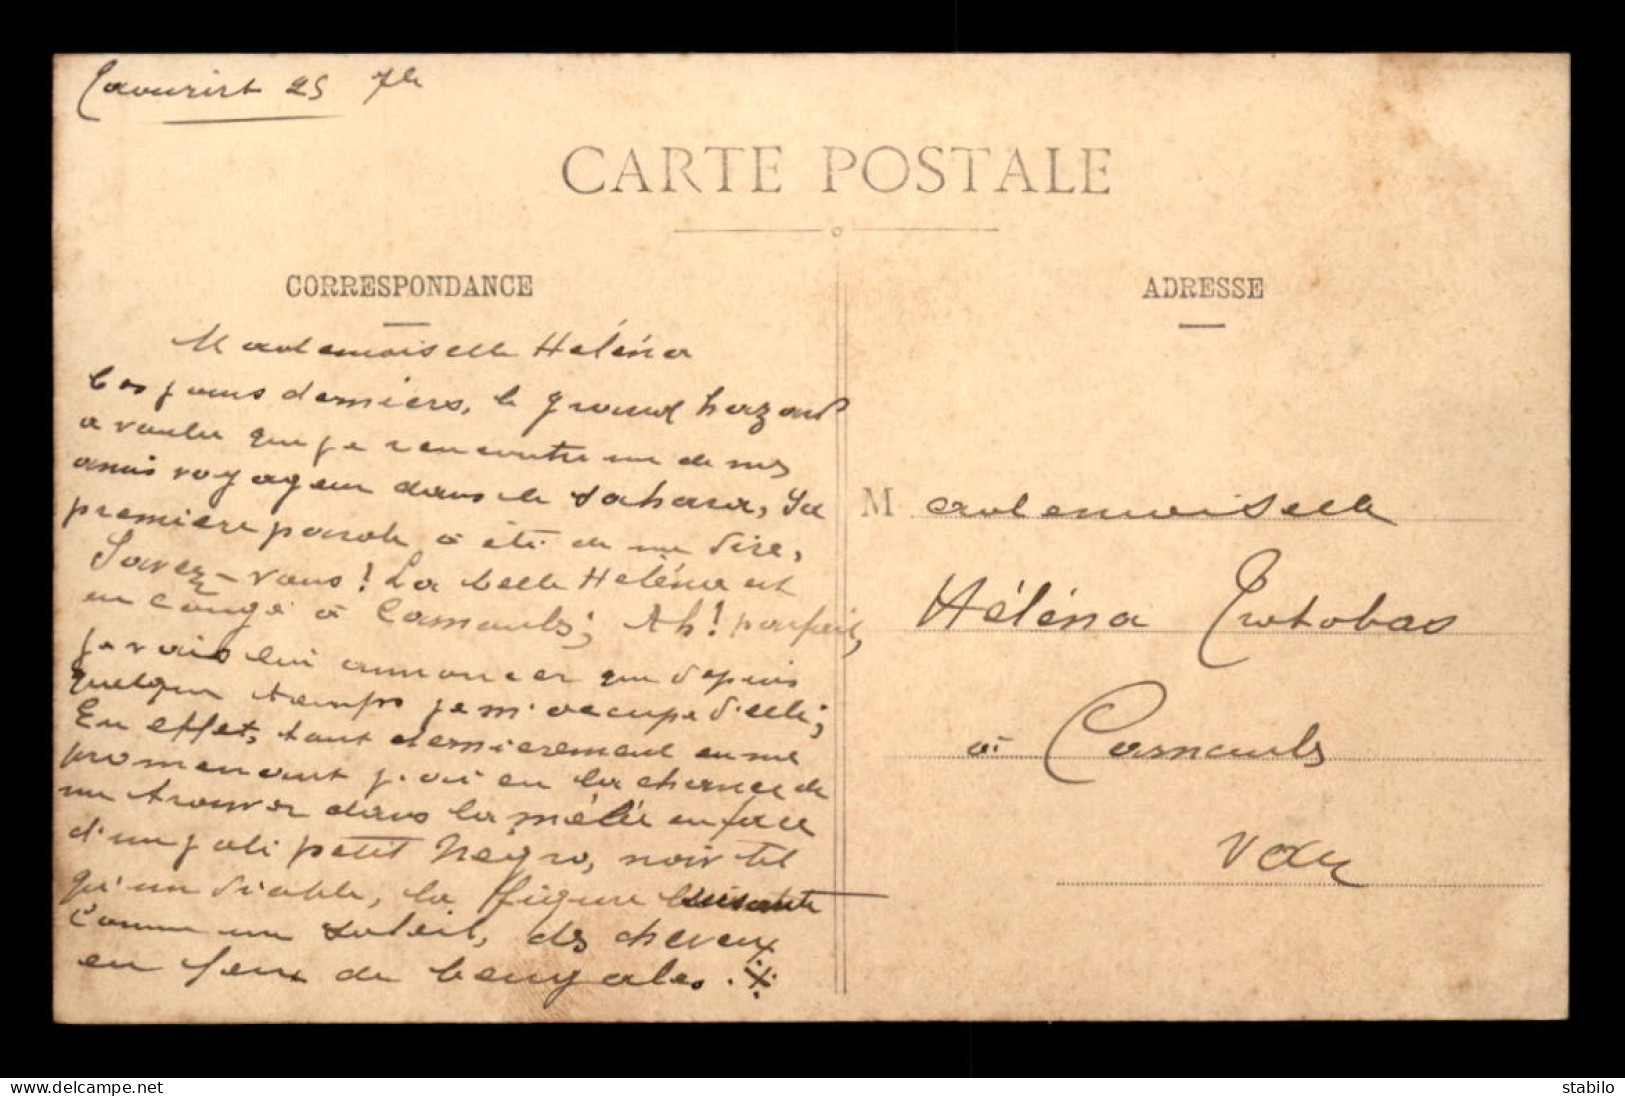 Taourirt 25 7bre
CARTE POSTALE
CORRESPONDANCE
Mademoiselle Héléna
Ces jours derniers, le grand hazard
a voulu que je rencontre un de mes
amis voyageur dans le Sahara, Sa
première parole a été de me dire,
Savez-vous! La belle Héléna est
en congé à Carnoules; Ah! parfait,
je vais lui annoncer que depuis
quelque temps je m'occupe d'elle;
En effet, tout dernièrement en me
promenant j'ai eu la chance de
me trouver dans la mêlée en face
d'un joli petit Négro, noir tel
qu'un diable, la figure luisante
comme un soleil, des cheveux
en feux de bengales.
ADRESSE
Mademoiselle
Héléna Trotobas
à Carnoules
Var
delcampe.net
stabilo